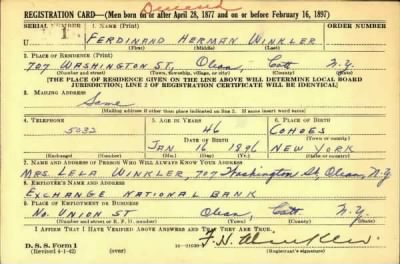 Deceased
REGISTRATION CARD—(Men born on or after April 28, 1877 and on or before February 16, 1897)
SERIAL NUMBER 1. NAME (Print) ORDER NUMBER
U FERDINAND HERMAN WINKLER
(First) (Middle) (Last)
2. PLACE OF RESIDENCE (Print)
707 WASHINGTON ST, Olean, Catt N.Y.
(Number and street) (Town, township, village, or city) (County) (State)
[THE PLACE OF RESIDENCE GIVEN ON THE LINE ABOVE WILL DETERMINE LOCAL BOARD
JURISDICTION; LINE 2 OF REGISTRATION CERTIFICATE WILL BE IDENTICAL]
3. MAILING ADDRESS
Same
[Mailing address if other than place indicated on line 2. If same insert word same]
4. TELEPHONE 5. AGE IN YEARS 6. PLACE OF BIRTH
5032 46 COHOES
DATE OF BIRTH (Town or county)
JAN 16 1896 NEW YORK
(Exchange) (Number) (Mo.) (Day) (Yr.) (State or country)
7. NAME AND ADDRESS OF PERSON WHO WILL ALWAYS KNOW YOUR ADDRESS
MRS. LELA WINKLER, 707 Washington St, Olean, N.Y
8. EMPLOYER'S NAME AND ADDRESS
EXCHANGE NATIONAL BANK
9. PLACE OF EMPLOYMENT OR BUSINESS
NO. UNION ST Olean, Catt. N.Y.
(Number and street or R. F. D. number) (Town) (County) (State)
I AFFIRM THAT I HAVE VERIFIED ABOVE ANSWERS AND THAT THEY ARE TRUE.
D. S. S. Form 1
(Revised 4-1-42) (over) F. H. Winkler
(Registrant's signature)